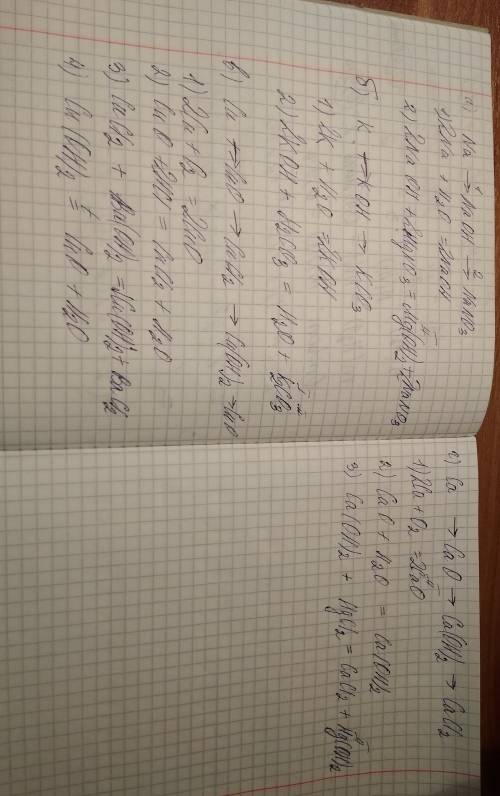 а) Na →¹ NaOH →² NaNO3
1) 2Na + H2O = 2NaOH
2) 2NaOH + MgNO3 = Mg(OH)2 + 2NaNO3
б) K → KOH → K2CO3
1) 2K + H2O = 2KOH
2) 2KOH + H2CO3 = H2O + K2CO3
в) Cu → CuO → CuCl2 → Cu(OH)2 → CuO
1) 2Cu + O2 = 2CuO
2) CuO + 2HCl = CuCl2 + H2O
3) CuCl2 + Ba(OH)2 = Cu(OH)2 + BaCl2
4) Cu(OH)2 =ᵗ CuO + H2O
г) Ca → CaO → Ca(OH)2 → CaCl2
1) 2Ca + O2 = 2CaO
2) CaO + H2O = Ca(OH)2
3) Ca(OH)2 + MgCl2 = CaCl2 + Mg(OH)2